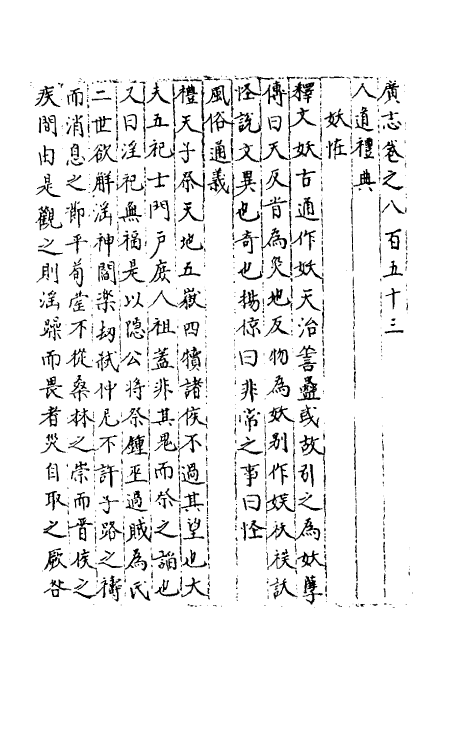 廣志卷之八百五十三
人道禮典
妖怪
釋文妖古通作妖天冶善蠱或故引之為妖孽
傳曰天反背為災地反物為妖别作娱祅䄏訞
怪説文異也奇也揚倞曰非常之事曰怪
風俗通義
禮天子祭天地五嶽四犢諸侯不過其望也大
夫五祀士門戸庶人祖盖非其鬼而祭之謟也
又曰淫祀無福是以隐公將祭鍾巫遇賊為氏
二世欲解滛神閻楽刼弑仲尼不許子路之禱
而消息之節平荀罃不從桑林之崇而晋侯之
疾間由是觀之則滛躁而畏者災自取之厥咎